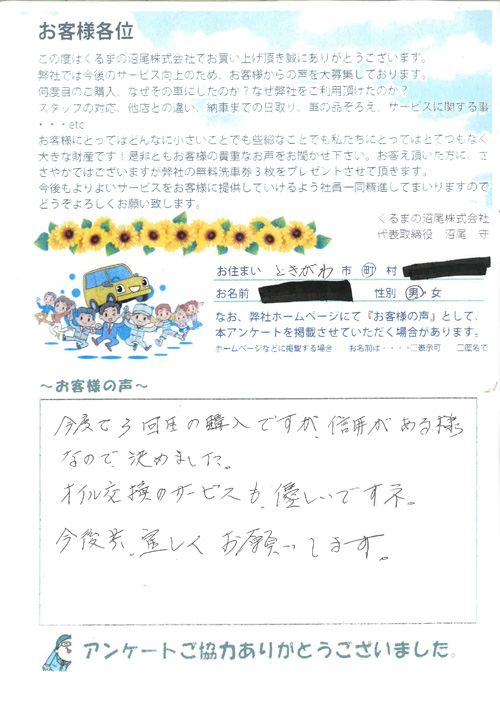 お客様各位
この度はくるまの沼尾株式会社でお買い上げ頂き誠にありがとうございます。
弊社では今後のサービス向上のため、お客様からの声を大募集しております。
何度目のご購入、なぜその車にしたのか？なぜ弊社をご利用頂けたのか？
スタッフの対応、他店との違い、納車までの日取り、車の品ぞろえ、サービスに関する事
・・・etc
お客様にとってはどんなに小さいことでも些細なことでも私たちにとってはとてつもなく
大きな財産です！是非ともお客様の貴重なお声をお聞かせ下さい。お答え頂いた方に、さ
さやかではございますが弊社の無料洗車券３枚をプレゼントさせて頂きます。
今後もよりよいサービスをお客様に提供していけるよう社員一同精進してまいりますので
どうぞよろしくお願い致します。
くるまの沼尾株式会社
代表取締役 沼尾 守
お住まい ときがわ 市 町 村
お名前 性別 男・女
なお、弊社ホームページにて『お客様の声』として、
本アンケートを掲載させていただく場合があります。
ホームページなどに掲載する場合 お名前は・・・・□表示可 □匿名で
～お客様の声～
今度で3回目の購入ですが、信用がある様
なので、決めました。
オイル交換のサービスも、優しいですネ。
今後共、宜しくお願いします。
アンケートご協力ありがとうございました。